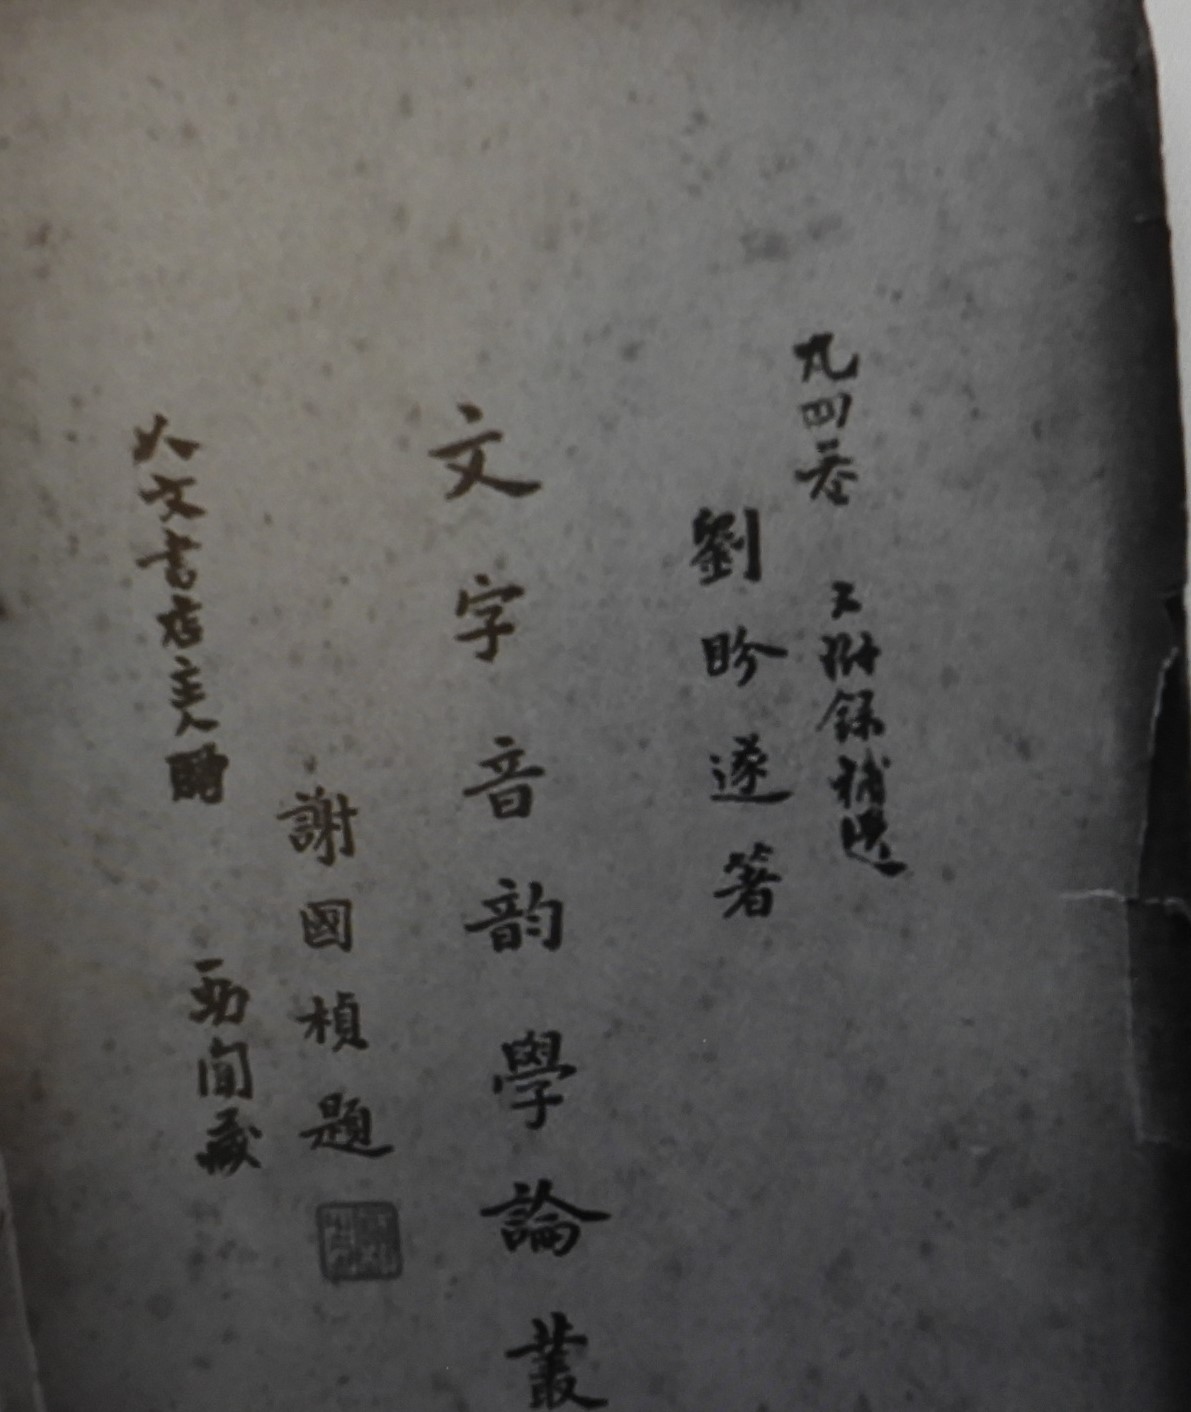 凡四卷 又附錄補遺
劉盼遂著
文字音韵學論叢
謝國楨題
人文書店主人贈 藏